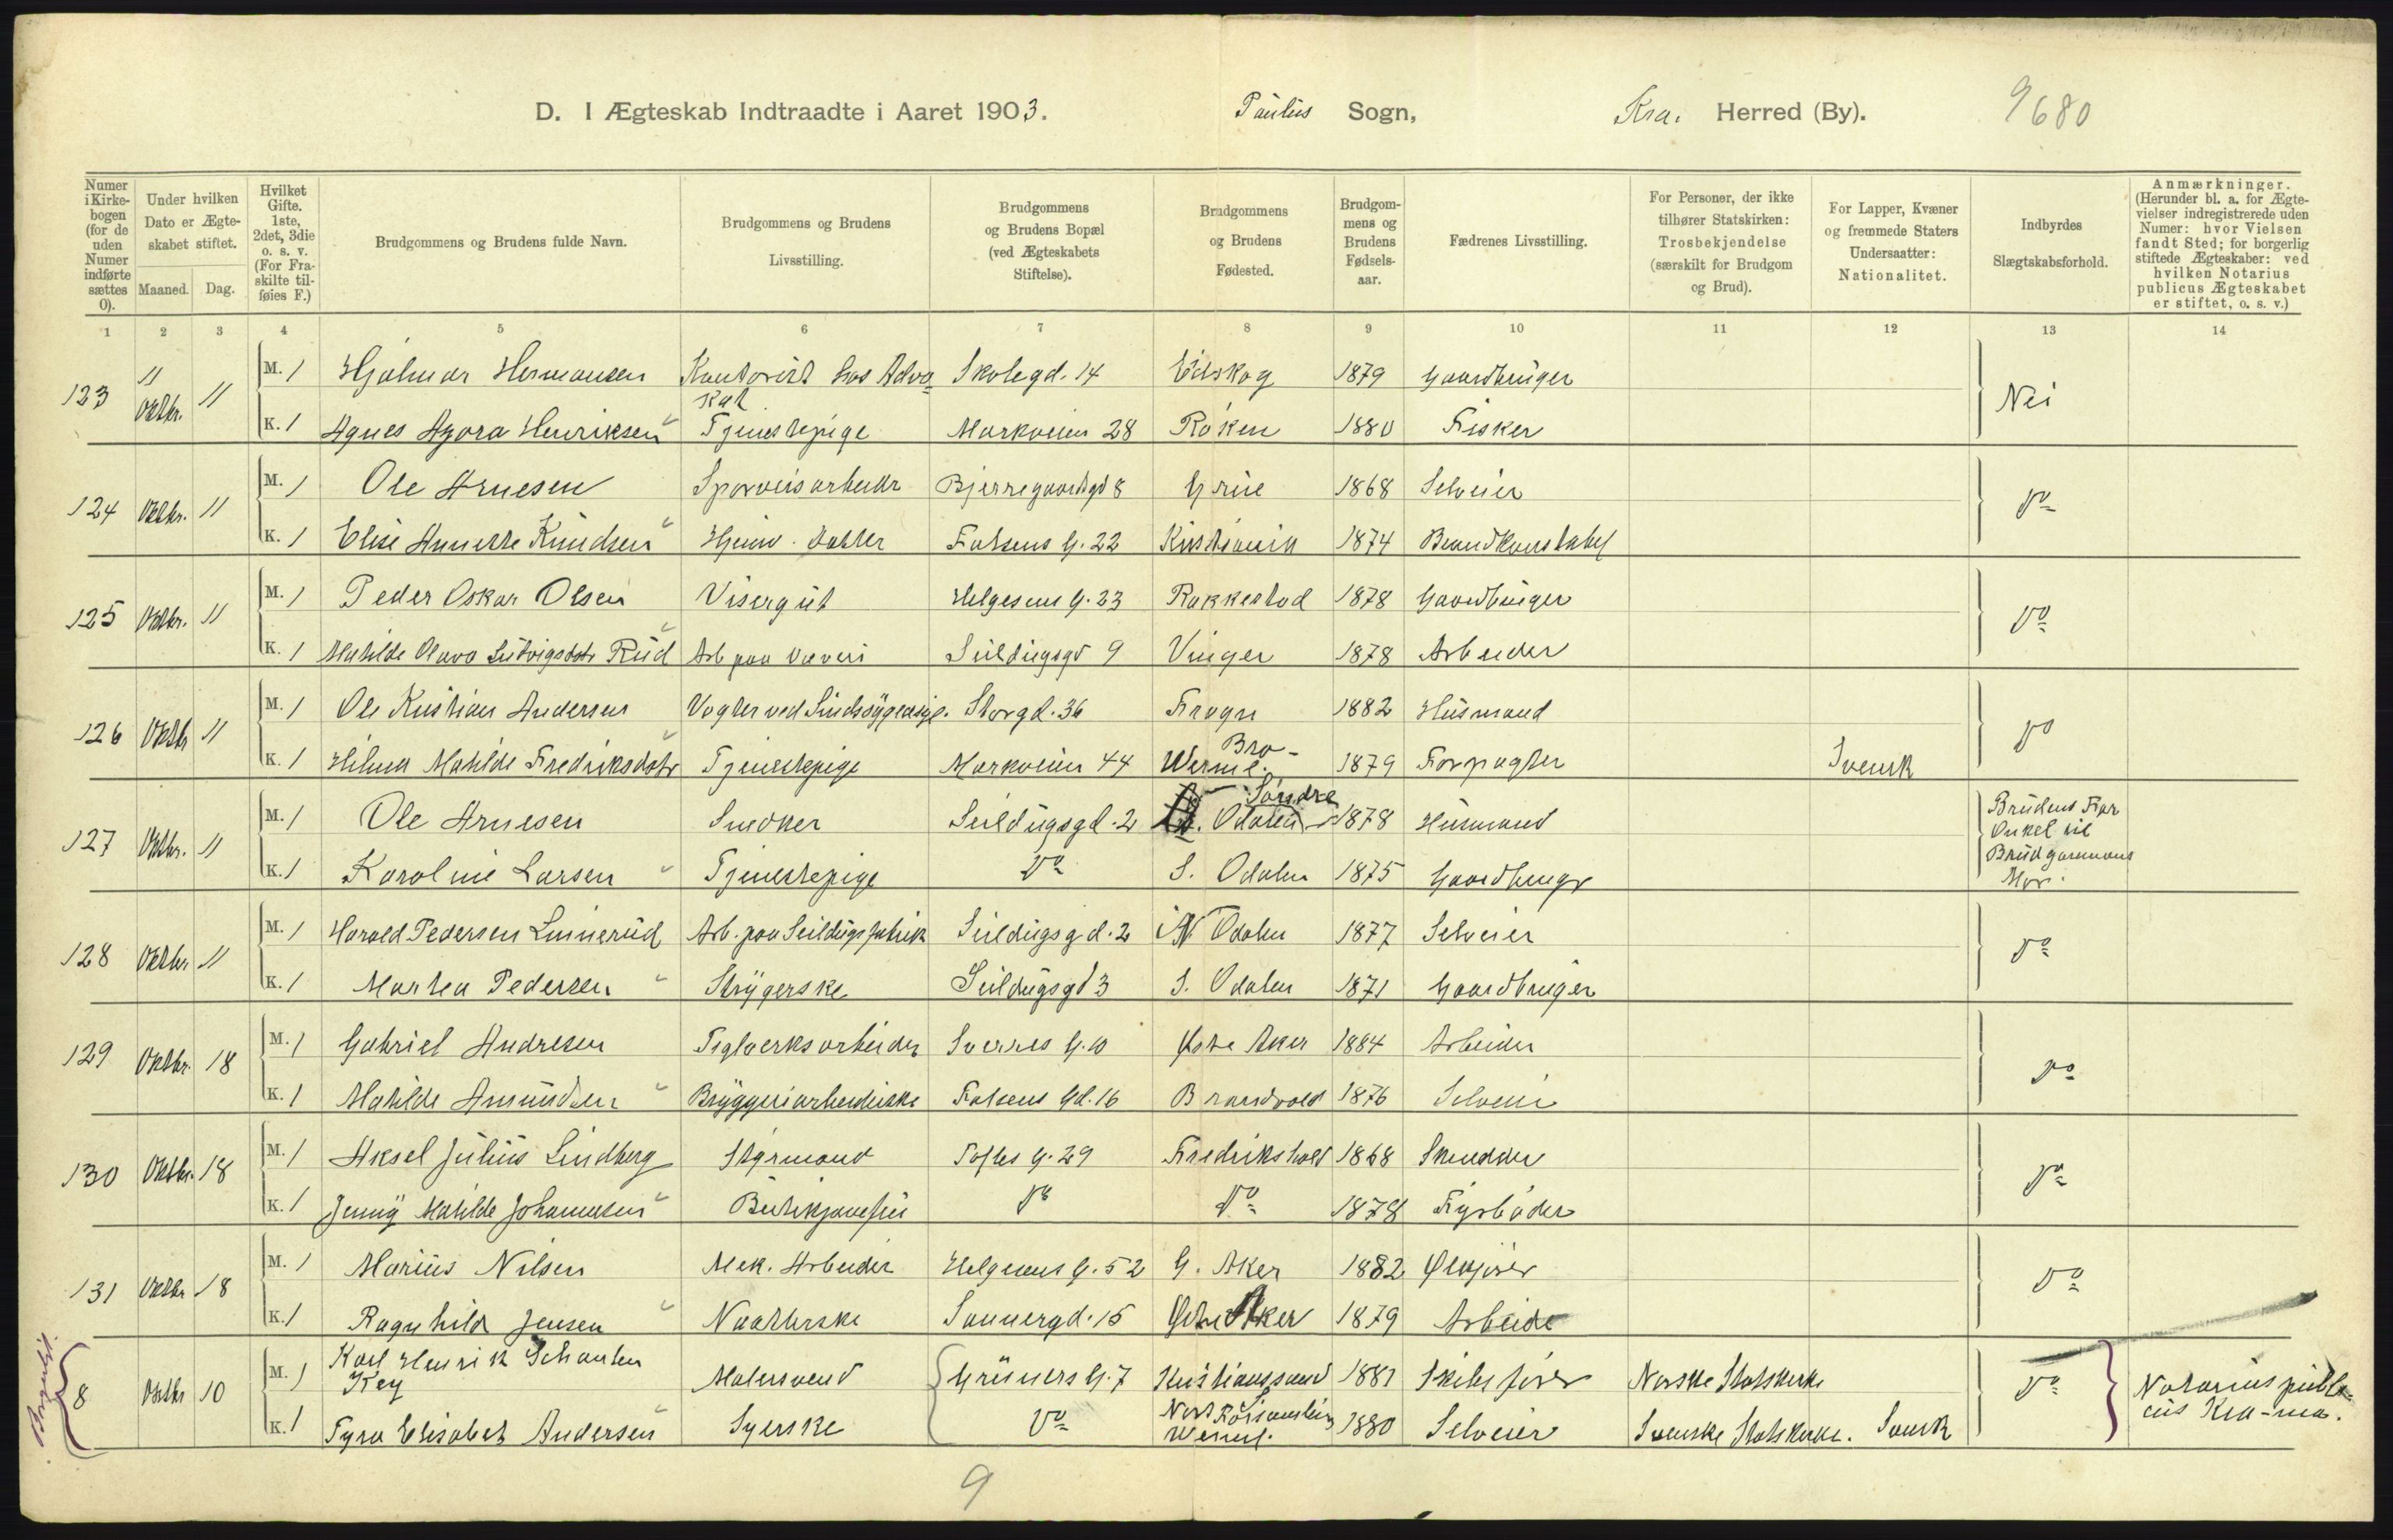 D. I Ægteskab Indtraadte i Aaret 1903. Paulus Sogn, Kra. Herred (By). 9680
Numer i Kirkebogen (for de uden Numer indførte sættes 0).
Under hvilken Dato er Ægteskabet stiftet. Maaned. Dag.
Hvilket Gifte. 1ste, 2det, 3die o. s. v. (For Fraskilte tilføies F.)
Brudgommens og Brudens fulde Navn.
Brudgommens og Brudens Livsstilling.
Brudgommens og Brudens Bopæl (ved Ægteskabets Stiftelse).
Brudgommens og Brudens Fødested.
Brudgommens og Brudens Fødselsaar.
Fædrenes Livsstilling.
For Personer, der ikke tilhører Statskirken: Trosbekjendelse (særskilt for Brudgom og Brud).
For Lapper, Kvæner og fremmede Staters Undersaatter: Nationalitet.
Indbyrdes Slægtskabsforhold.
Anmærkninger. (Herunder bl. a. for Ægtevielser indregistrerede uden Numer: hvor Vielsen fandt Sted; for borgerlig stiftede Ægteskaber: ved hvilken Notarius publicus Ægteskabet er stiftet, o. s. v.)
1 2 3 4 5 6 7 8 9 10 11 12 13 14
123 Oktbr. 11 M. 1 Hjalmar Hermansen Kontorist hos Advokat Skolegd. 14 Eidskog 1879 Gaardbruger Nei
K. 1 Agnes Henriksen Tjenestepige Markveien 28 Røken 1880 Fisker
124 Oktbr. 11 M. 1 Ole Arnesen Sporveisarbeider Bjerregaardsgd 8 Grue 1868 Selveier Do
K. 1 Elise Annette Knudsen Hjemv. Datter Falsens G. 22 Kristiania 1874 Brandkonstabel
125 Oktbr. 11 M. 1 Peder Oskar Olsen Visergut Helgesens G. 23 Rakkestad 1878 Gaardbruger Do
K. 1 Mathilde Olava Ludvigsdatr Rud Arb paa Væveri Seildugsgd 9 Vinger 1878 Arbeider
126 Oktbr 11 M. 1 Ole Kristian Andersen Vogter ved Sindssygeasyl. Storgd. 36 Frogn 1882 Husmand Do
K. 1 Hilma Mathilde Fredriksdatr Tjenestepige Markveien 44 Bro - Werml. 1879 Forpagter Svensk
127 Oktbr. 11 M. 1 Ole Arnesen Snedker Seildugsgd. 2 Søndre Odalen 1878 Husmand Brudens Far Onkel til Brudgommens Mor.
K. 1 Karoline Larsen Tjenestepige Do S. Odalen 1875 Gaardbrugr
128 Oktbr 11 M. 1 Harald Pedersen Linnerud Arb. paa Seildugsfabrik Seildugsgd. 2 N Odalen 1877 Selveier Do
K. 1 Marthea Pedersen Strygerske Seildugsgd 3 S. Odalen 1871 Gaardbruger
129 Oktbr. 18 M. 1 Gabriel Andresen Teglverksarbeider Sverres G. 10 Østre Aker 1884 Arbeider Do
K. 1 Mathilde Amundsen Bryggeriarbeiderske Falsens Gd. 16 Brandvold 1876 Selveier
130 Oktbr. 18 M. 1 Aksel Julius Lindberg Styrmand Toftes G. 29 Fredrikshald 1868 Skrædder Do
K. 1 Jenny Mathilde Johannesen Butikjomfru Do Do 1878 Fyrbøder
131 Oktbr 18 M. 1 Marius Nilsen Mek. Arbeider Helgesens G. 52 G. Aker 1882 Ølkjører Do
K. 1 Ragnhild Jensen Naatlerske Sannergd. 15 Østre Aker 1879 Arbeide
Borgerlit.
8 Oktbr 10 M. 1 Karl Henrik Schanten Key Malersvend Grüners G. 7 Kristianssund 1881 Skibsfører Norske Statskirke Do Notarius publicus Kra-nia.
K. 1 Tyra Elisabet Andersen Syerske Do Werml. 1880 Selveier Svenske Statskirke. Svensk
9